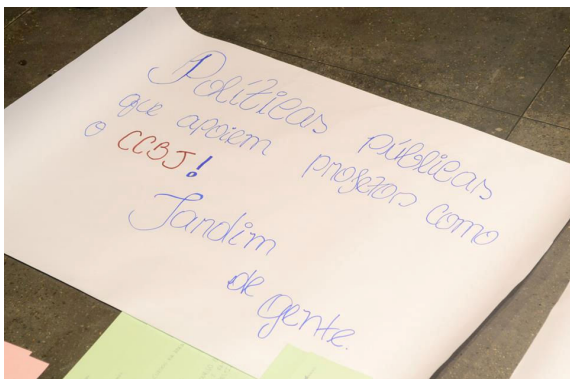 Políticas públicas
que apoiem projetos como
o CCBJ!
Jardim
de gente.